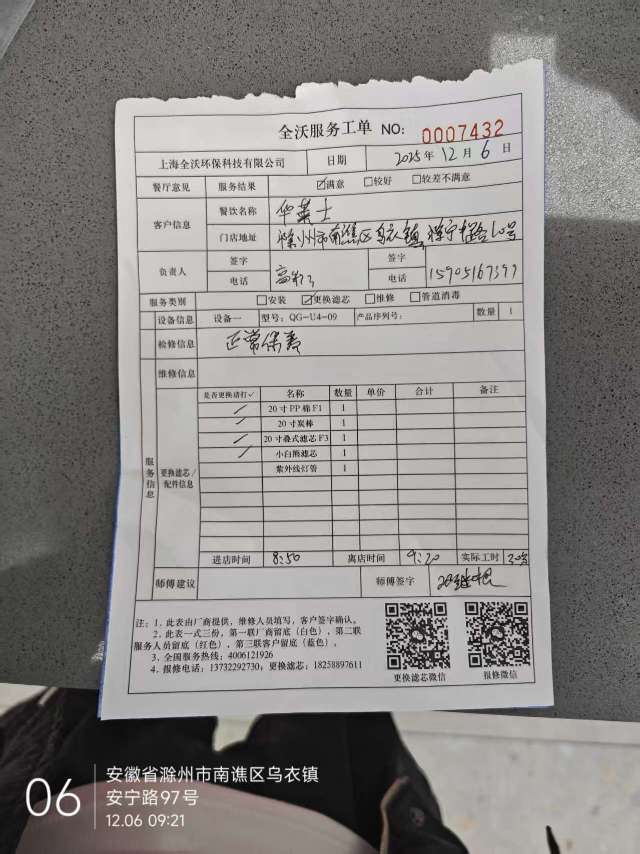 全沃服务工单 NO: 0007432
上海全沃环保科技有限公司 日期 2025年12月6日
餐厅意见 服务结果 ☑满意 □较好 □较差不满意
客户信息 餐饮名称 华莱士
门店地址 滁州市南谯区乌衣镇
负责人 签字 签字
电话 电话
服务类别 □安装 ☑更换滤芯 □维修 □管道消毒
设备信息 设备一 型号:QG-U4-09 产品序列号: 数量 1
检修信息 正常保养
维修信息
服务信息 更换滤芯/配件信息
是否更换请打✓ 名称 数量 单价 合计 备注
20寸PP棉F1 1
20寸炭棒 1
20寸叠式滤芯F3 1
小白熊滤芯 1
紫外线灯管 1
进店时间 8:50 离店时间 9:20 实际工时 30分
师傅建议 师傅签字
注:1.此表由厂商提供,维修人员填写,客户签字确认。
2.此表一式三份,第一联厂商留底(白色),第二联
服务人员留底(红色),第三联客户留底(蓝色)。
3.全国服务热线:4006121926
4.报修电话:13732292730;更换滤芯:18258897611
更换滤芯微信 报修微信
06
安徽省滁州市南谯区乌衣镇
安宁路97号
12.06 09:21